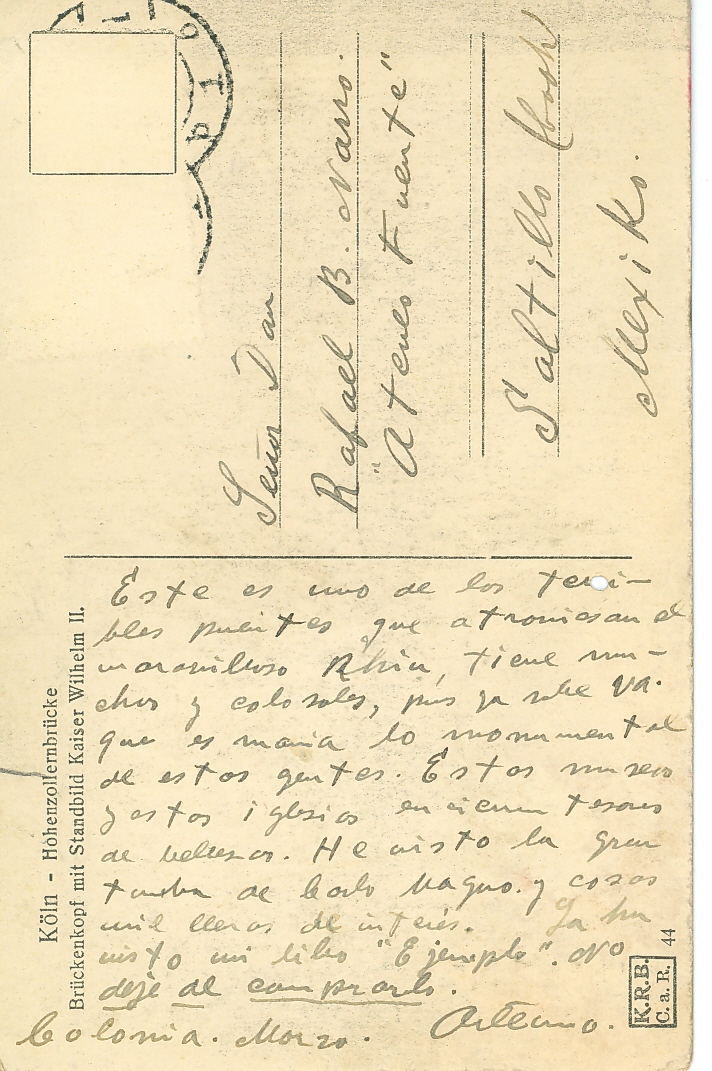 Señor Don
Rafael B. Narro.
"Ateneo Fuente"
Saltillo Coah
Mexiko.
Köln - Hohenzollernbrücke
Brückenkopf mit Standbild Kaiser Wilhelm II.
Este es uno de los terri-
bles puentes que atraviesan el
maravilloso Rhin, tiene mu-
chos y colosales, pues ya sabe Vd.
que es mania lo monumental
de estas gentes. Estos museos
y estas iglesias encierran tesoros
de bellezas. He visto la gran
tumba de Carlo Magno y cosas
mil llenas de interés. Ya ha
visto mi libro "Ejemplo". No
deje de comprarlo.
Colonia. Marzo. Artemio.
K.R.B.
C.a.R.
44